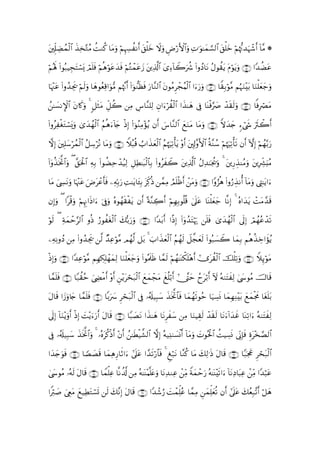 * مَّآ أَشْهَدتُّهُمْ خَلْقَ ٱلسَّمَٰوَٰتِ وَٱلْأَرْضِ وَلَا خَلْقَ أَنفُسِهِمْ وَمَا كُنتُ مُتَّخِذَ ٱلْمُضِلِّينَ
عَضُدًا ﴿٥١﴾ وَيَوْمَ يَقُولُ نَادُوا۟ شُرَكَآءِىَ ٱلَّذِينَ زَعَمْتُمْ فَدَعَوْهُمْ فَلَمْ يَسْتَجِيبُوا۟ لَهُمْ
وَجَعَلْنَا بَيْنَهُم مَّوْبِقًا ﴿٥٢﴾ وَرَءَا ٱلْمُجْرِمُونَ ٱلنَّارَ فَظَنُّوٓا۟ أَنَّهُم مُّوَاقِعُوهَا وَلَمْ يَجِدُوا۟ عَنْهَا
مَصْرِفًا ﴿٥٣﴾ وَلَقَدْ صَرَّفْنَا فِى هَٰذَا ٱلْقُرْءَانِ لِلنَّاسِ مِن كُلِّ مَثَلٍ ۚ وَكَانَ ٱلْإِنسَٰنُ
أَكْثَرَ شَىْءٍ جَدَلًا ﴿٥٤﴾ وَمَا مَنَعَ ٱلنَّاسَ أَن يُؤْمِنُوٓا۟ إِذْ جَآءَهُمُ ٱلْهُدَىٰ وَيَسْتَغْفِرُوا۟
رَبَّهُمْ إِلَّآ أَن تَأْتِيَهُمْ سُنَّةُ ٱلْأَوَّلِينَ أَوْ يَأْتِيَهُمُ ٱلْعَذَابُ قُبُلًا ﴿٥٥﴾ وَمَا نُرْسِلُ ٱلْمُرْسَلِينَ إِلَّا
مُبَشِّرِينَ وَمُنذِرِينَ ۚ وَيُجَٰدِلُ ٱلَّذِينَ كَفَرُوا۟ بِٱلْبَٰطِلِ لِيُدْحِضُوا۟ بِهِ ٱلْحَقَّ ۖ وَٱتَّخَذُوٓا۟
ءَايَٰتِى وَمَآ أُنذِرُوا۟ هُزُوًا ﴿٥٦﴾ وَمَنْ أَظْلَمُ مِمَّن ذُكِّرَ بِـَٔايَٰتِ رَبِّهِۦ فَأَعْرَضَ عَنْهَا وَنَسِىَ مَا
قَدَّمَتْ يَدَاهُ ۚ إِنَّا جَعَلْنَا عَلَىٰ قُلُوبِهِمْ أَكِنَّةً أَن يَفْقَهُوهُ وَفِىٓ ءَاذَانِهِمْ وَقْرًا ۖ وَإِن
تَدْعُهُمْ إِلَى ٱلْهُدَىٰ فَلَن يَهْتَدُوٓا۟ إِذًا أَبَدًا ﴿٥٧﴾ وَرَبُّكَ ٱلْغَفُورُ ذُو ٱلرَّحْمَةِ ۖ لَوْ
يُؤَاخِذُهُم بِمَا كَسَبُوا۟ لَعَجَّلَ لَهُمُ ٱلْعَذَابَ ۚ بَل لَّهُم مَّوْعِدٌ لَّن يَجِدُوا۟ مِن دُونِهِۦ
مَوْئِلًا ﴿٥٨﴾ وَتِلْكَ ٱلْقُرَىٰٓ أَهْلَكْنَٰهُمْ لَمَّا ظَلَمُوا۟ وَجَعَلْنَا لِمَهْلِكِهِم مَّوْعِدًا ﴿٥٩﴾ وَإِذْ
قَالَ مُوسَىٰ لِفَتَىٰهُ لَآ أَبْرَحُ حَتَّىٰٓ أَبْلُغَ مَجْمَعَ ٱلْبَحْرَيْنِ أَوْ أَمْضِىَ حُقُبًا ﴿٦٠﴾ فَلَمَّا
بَلَغَا مَجْمَعَ بَيْنِهِمَا نَسِيَا حُوتَهُمَا فَٱتَّخَذَ سَبِيلَهُۥ فِى ٱلْبَحْرِ سَرَبًا ﴿٦١﴾ فَلَمَّا جَاوَزَا قَالَ
لِفَتَىٰهُ ءَاتِنَا غَدَآءَنَا لَقَدْ لَقِينَا مِن سَفَرِنَا هَٰذَا نَصَبًا ﴿٦٢﴾ قَالَ أَرَءَيْتَ إِذْ أَوَيْنَآ إِلَى
ٱلصَّخْرَةِ فَإِنِّى نَسِيتُ ٱلْحُوتَ وَمَآ أَنسَىٰنِيهُ إِلَّا ٱلشَّيْطَٰنُ أَنْ أَذْكُرَهُۥ ۚ وَٱتَّخَذَ سَبِيلَهُۥ فِى
ٱلْبَحْرِ عَجَبًا ﴿٦٣﴾ قَالَ ذَٰلِكَ مَا كُنَّا نَبْغِ ۚ فَٱرْتَدَّا عَلَىٰٓ ءَاثَارِهِمَا قَصَصًا ﴿٦٤﴾ فَوَجَدَا
عَبْدًا مِّنْ عِبَادِنَآ ءَاتَيْنَٰهُ رَحْمَةً مِّنْ عِندِنَا وَعَلَّمْنَٰهُ مِن لَّدُنَّا عِلْمًا ﴿٦٥﴾ قَالَ لَهُۥ مُوسَىٰ
هَلْ أَتَّبِعُكَ عَلَىٰٓ أَن تُعَلِّمَنِ مِمَّا عُلِّمْتَ رُشْدًا ﴿٦٦﴾ قَالَ إِنَّكَ لَن تَسْتَطِيعَ مَعِىَ صَبْرًا